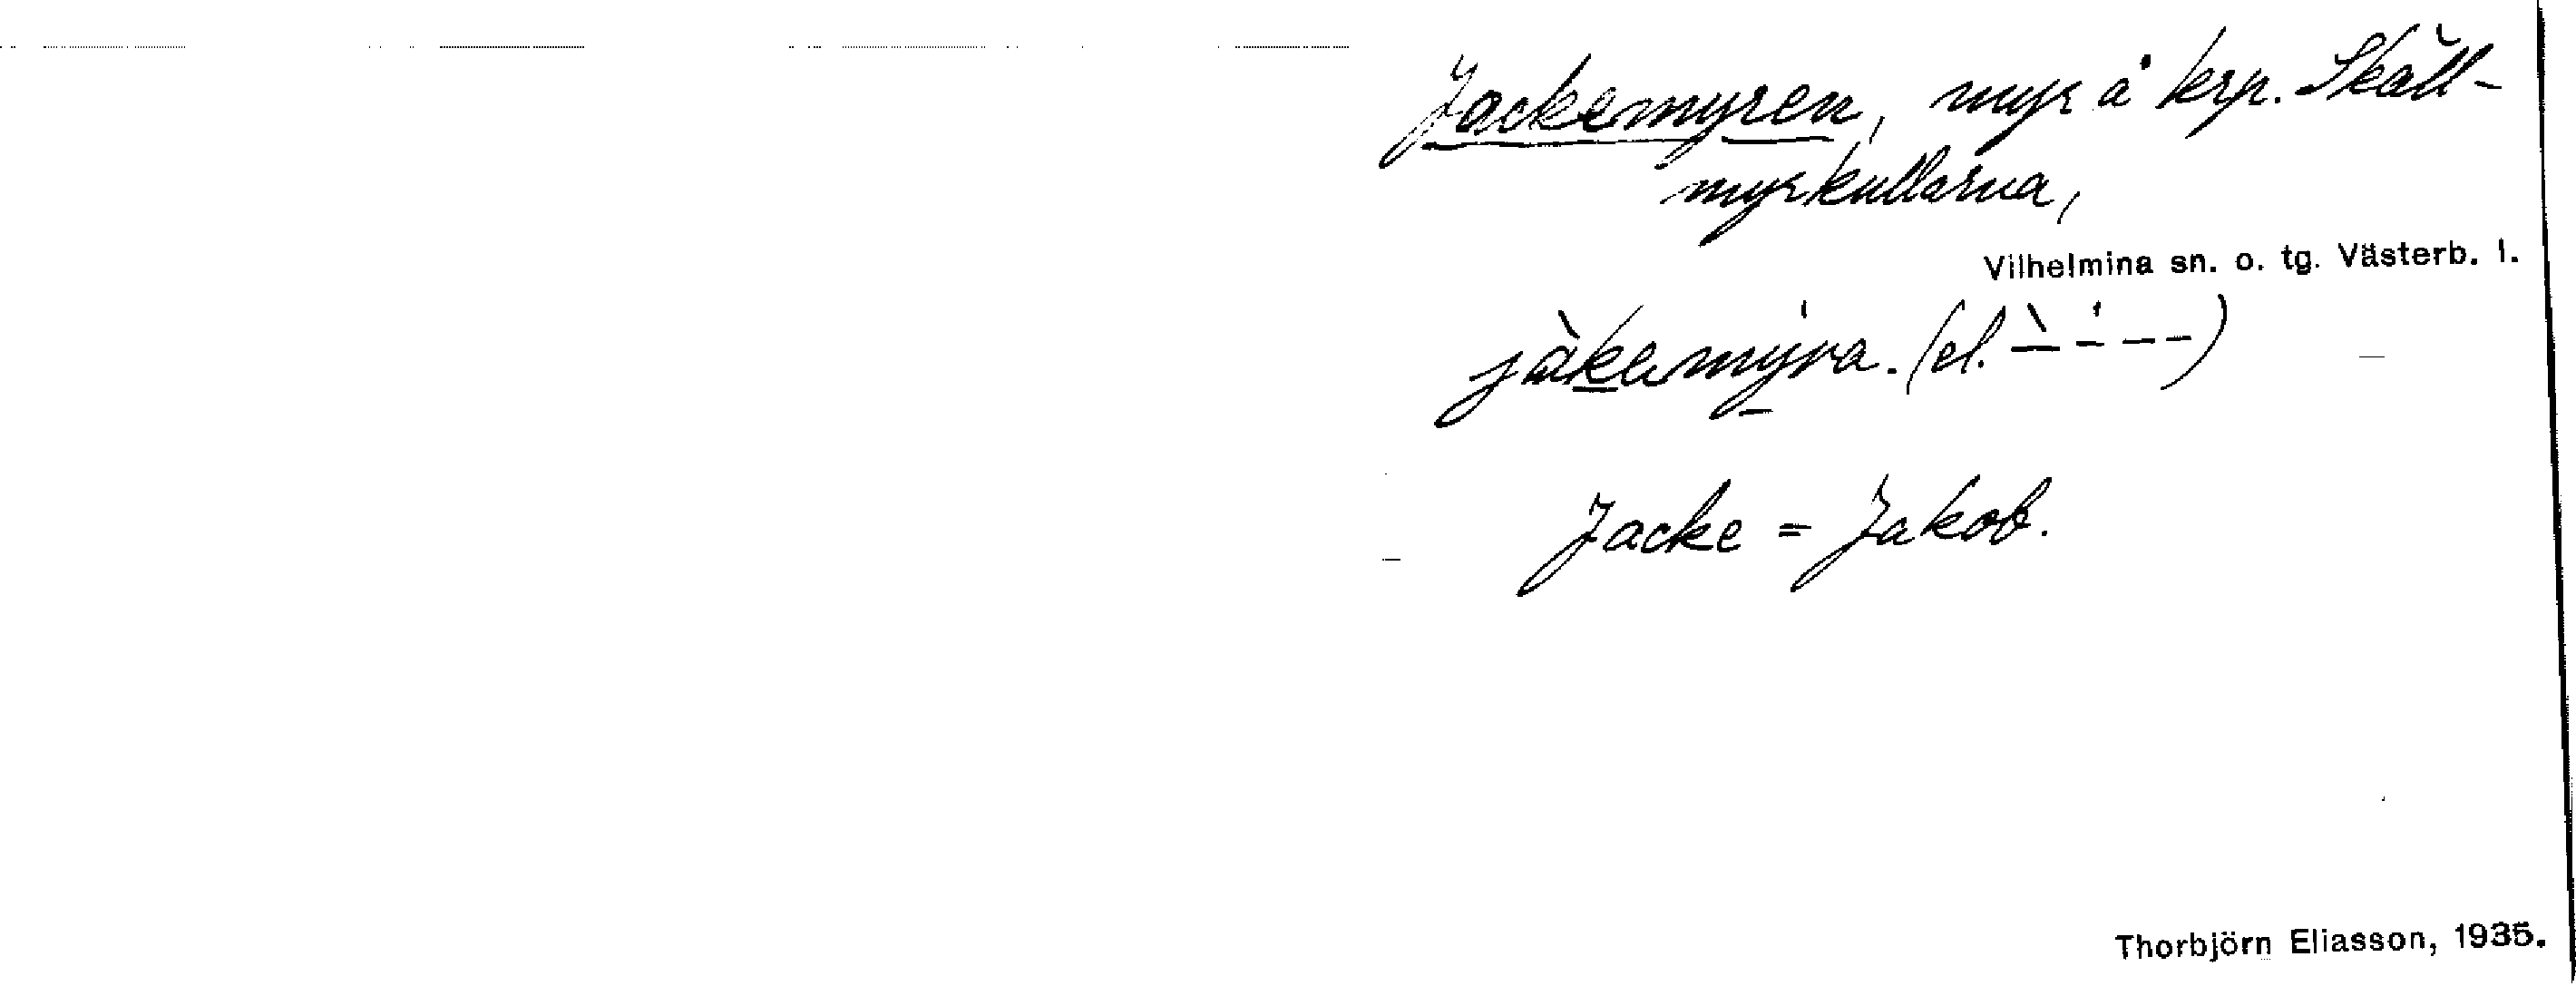 Jackemyren, myr å krp. Skåll-
myrkullarna,
Vilhelmina sn. o. tg. Västerb. l.
jàkemyra. (el. – – – –)
Jacke = Jakob.
Thorbjörn Eliasson, 1935.